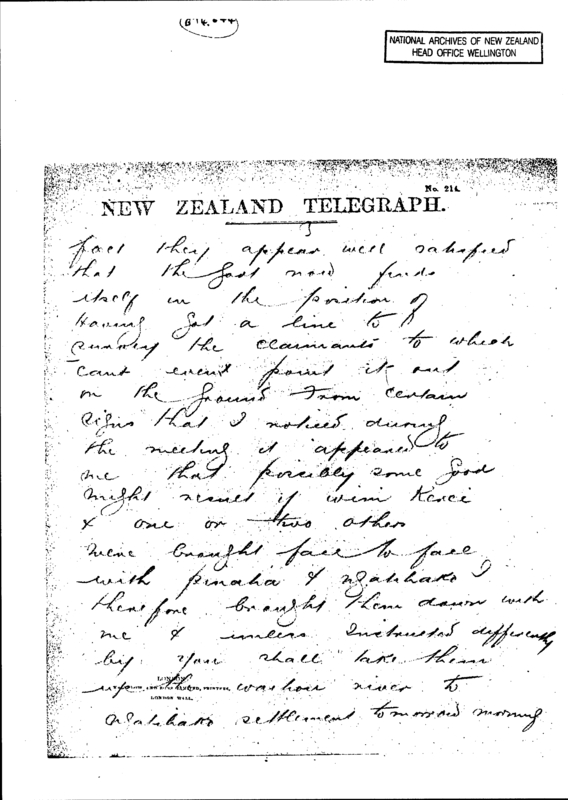 (B 14.044)
NATIONAL ARCHIVES OF NEW ZEALAND
HEAD OFFICE WELLINGTON
No. 214.
NEW ZEALAND TELEGRAPH.
3
fact they appear well satisfied
that the Govt now finds
itself in the position of
Having got a line to
survey the claimants to which
cant even point it out
on the ground From certain
signs that I noticed during
the meeting it appeared to
me that possibly some good
might result if wiremu Kerei
& one or two others
were brought face to face
with pinaha & ngatihako I
therefore brought them down with
me & unless Instructed differently
by you shall take them
up the waihou river to
ngatihako settlement tomorrow morning
LONDON
PRINTERS,
LONDON WALL.